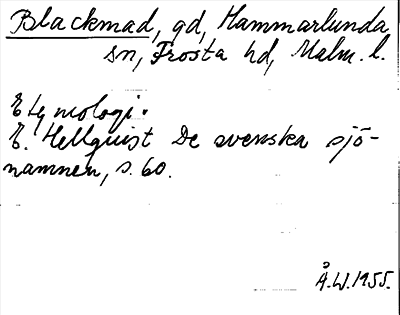 Blackmad, gd, Hammarlunda
sn, Frosta hd, Malm. l.
Etymologi.
E. Hellquist De svenska sjö-
namnen, s. 60.
Å.W.1955.